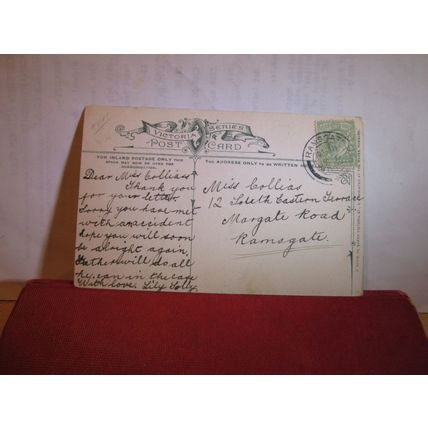 VICTORIA SERIES
POST CARD
FOR INLAND POSTAGE ONLY THIS
SPACE MAY NOW BE USED FOR
THE ADDRESS ONLY TO BE WRITTEN
Dear Miss Collias
Thank you
for your letter.
Sorry you have met
with an accident
hope you will soon
be alright again.
Father will do all
he can in the case
With love. Lily
Miss Collias
12 South Eastern Terrace
Margate Road
Ramsgate.